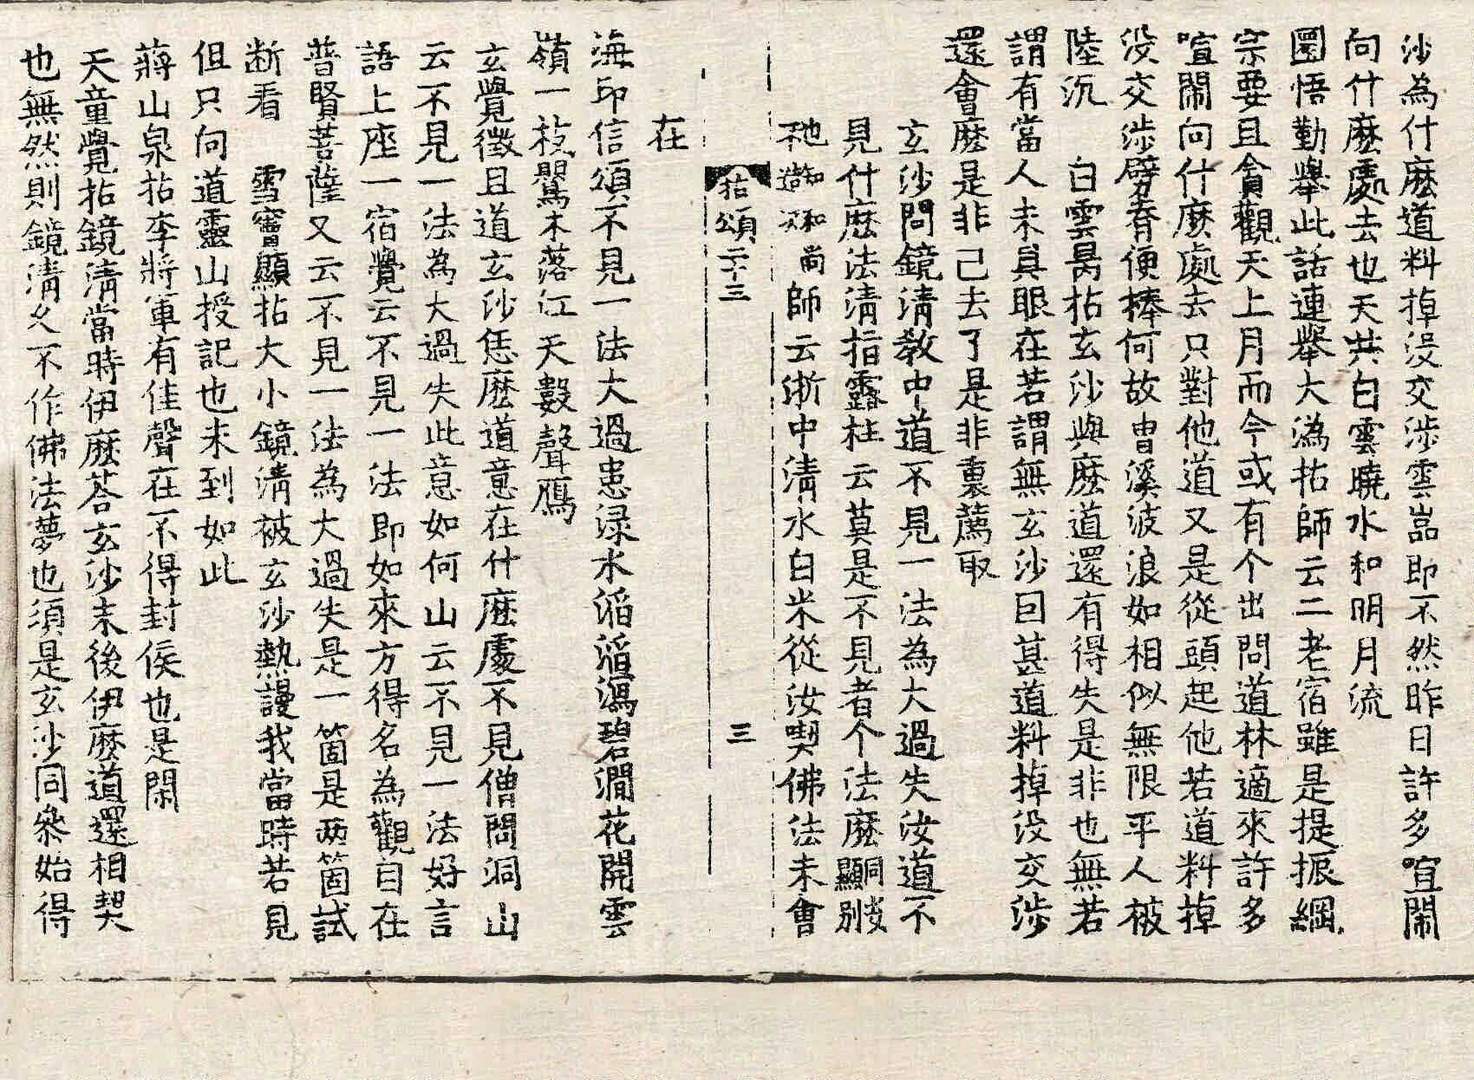 沙為什麽道料掉没交渉雲嵓即不然昨日許多喧鬧
向什麽處去也天共白雲曉水和明月流
圜悟勤舉此話連舉大溈拈師云二老宿雖是提振綱
宗要且貪觀天上月而今或有个出問道林適來許多
喧鬧向什麽處去只對他道又是從頭起他若道料掉
没交渉劈脊便棒何故曺溪波浪如相似無限平人被
陸沉　白雲昺拈玄沙與麽道還有得失是非也無若
謂有當人未具眼在若謂無玄沙囙甚道料掉没交渉
還會麽是非己去了是非裏薦取
玄沙問鏡清教中道不見一法為大過失汝道不
見什麽法清指露柱云莫是不見者个法麽
師云浙中清水白米從汝喫佛法未會
拈頌二十三　三
在
海印信頌不見一法大過患渌水滔滔瀉碧澗花開雲
嶺一枝鸎木落江天數聲鴈
玄覺徵且道玄沙恁麽道意在什麽處不見僧問洞山
云不見一法為大過失此意如何山云不見一法好言
語上座一宿覺云不見一法即如來方得名為觀自在
普賢菩薩又云不見一法為大過失是一箇是兩箇試
断看　雪竇顯拈大小鏡清被玄沙熱謾我當時若見
但只向道靈山授記也未到如此
蔣山泉拈李將軍有佳聲在不得封侯也是閑
天童覺拈鏡清當時伊麽荅玄沙末後伊麽道還相契
也無然則鏡清久不作佛法夢也須是玄沙同叅始得